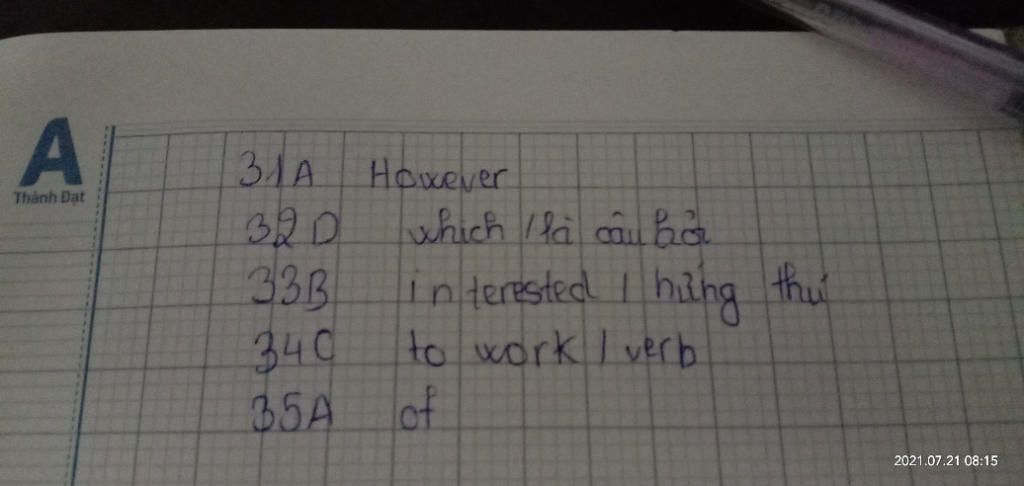 A
Thành Đạt
31A However
32D which / là câu hỏi
33B interested / hứng thú
34C to work / verb
35A of
2021.07.21 08:15